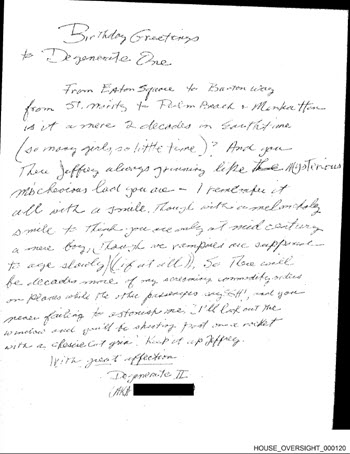 Birthday Greetings
to Degenerate One
From Eaton Square to Barton Way
from St. Moritz to Palm Beach & Manhattan
is it a mere 2 decades in Earthtime
(so many girls, so little time)? And you
There Jeffrey always grinning like Mysterious
mischievous lad you are – I remember it
all with a smile. Though with melancholy
smile to think you are only at mid century
a mere boy, (though we vampires are supposed
to age slowly) (if at all)). So There will
be decades more of my screaming commodity orders
on planes while the other passengers say, and you
never failing to astonish me. I'll look out the
window and you'll be shooting past on a rocket
with a cheshire cat grin! Keep it up Jeffrey.
With great affection
Degenerate II
(AKA
HOUSE_OVERSIGHT_000120